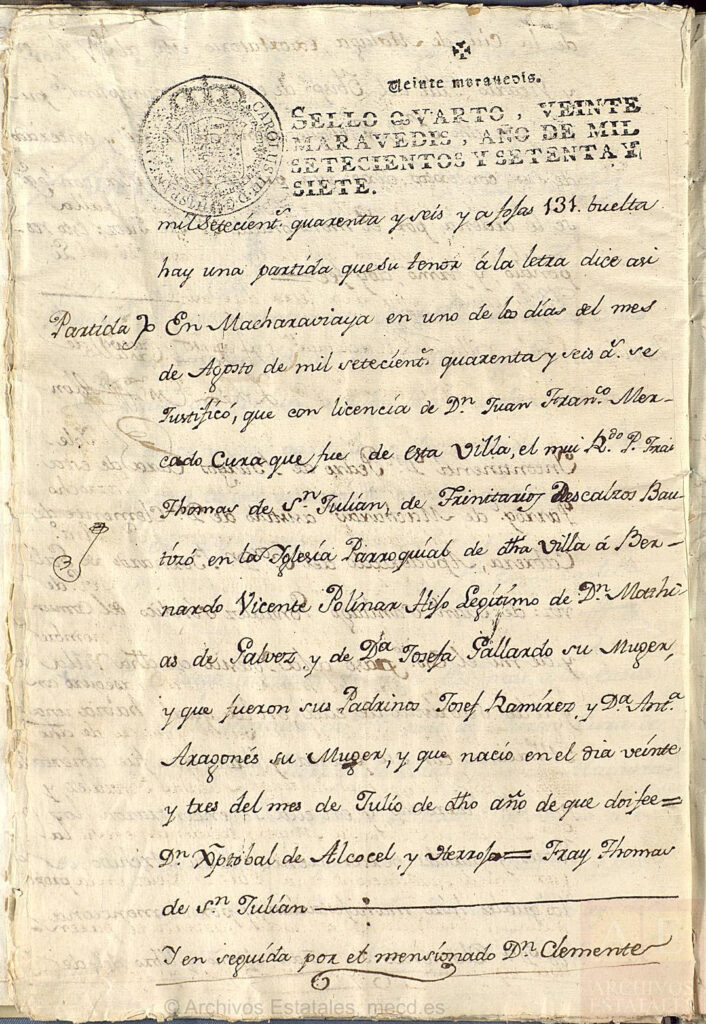 Veinte maravedis.
SELLO QVARTO, VEINTE
MARAVEDIS, AÑO DE MIL
SETECIENTOS Y SETENTA Y
SIETE.
CAROLUS III D G HISPANIAR
mil setecient.s quarenta y seis y a fojas 131. buelta
hay una partida que su tenor á la letra dice asi
Partida En Macharaviaya en uno de los días del mes
de Agosto de mil setecient.s quarenta y seis a.s se
Justificó, que con licencia de D.n Juan Fran.co Mer-
cado Cura que fue de esta Villa, el mui R.do P. Frai
Thomas de S.n Julián, de Trinitarios Descalzos Bau-
tizó en la Yglesía Parroquíal de dha Villa á Ber-
nardo Vicente Polinar Hijo Legítimo de D.n Mathi-
as de Galvez, y de D.a Josefa Gallardo su Muger,
y que fueron sus Padrinos Josef Ramírez, y D.a Ant.a
Aragonés su Muger, y que nació en el dia veinte
y tres del mes de Julio de dho año de que doi fee=
D.n Xptobal de Alcocel, y = Fray Thomas
de S.n Julián
Y en seguida por el mensionado D.n Clemente
© Archivos Estatales, mecd.es
ARCHIVOS
ESTATALES